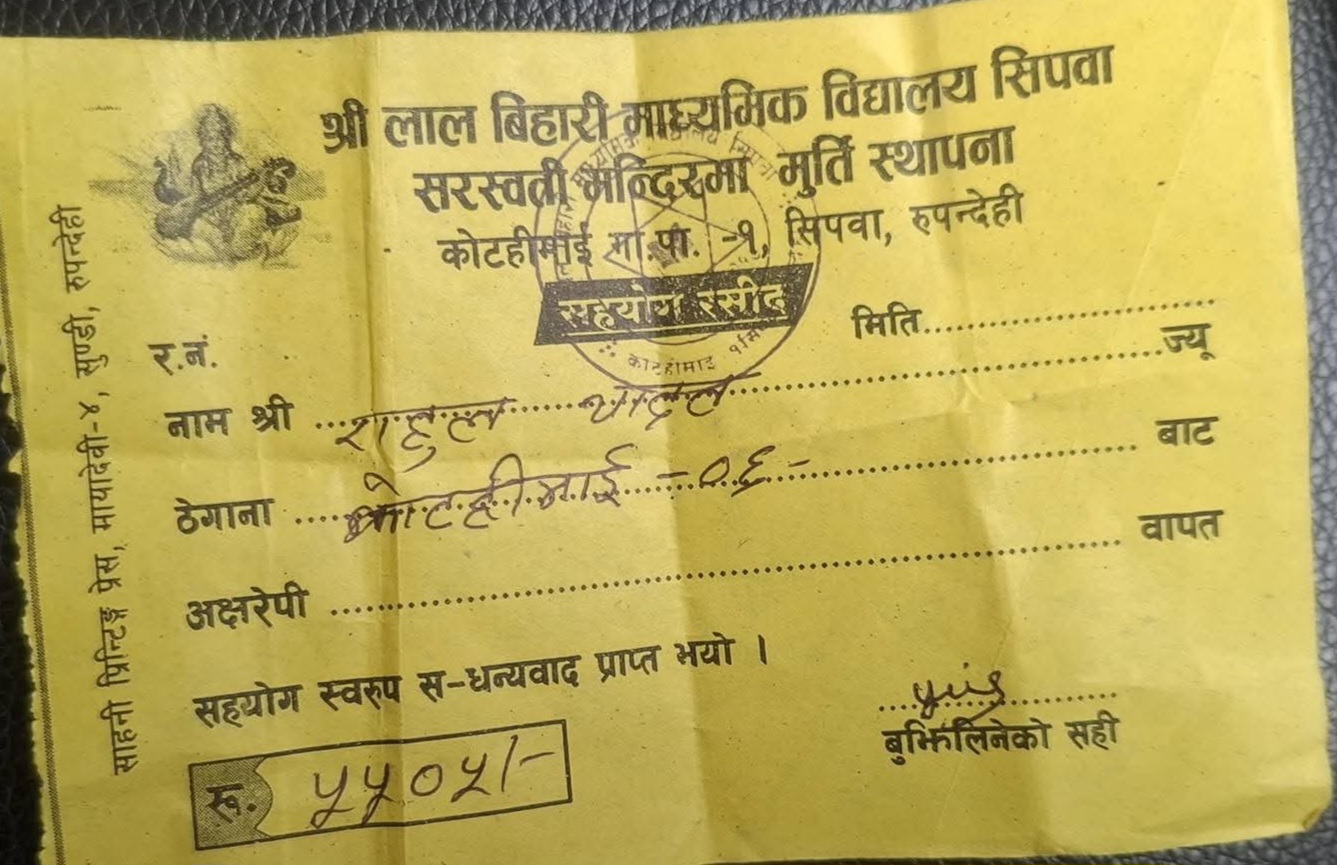 श्री लाल बिहारी माध्यमिक विद्यालय सिपवा
सरस्वती मन्दिरमा मुर्ति स्थापना
कोटहीमाई गा.पा. -१, सिपवा, रुपन्देही
सहयोग रसीद
र.नं.
मिति
नाम श्री राहुल यादव ज्यू
ठेगाना कोटहीमाई -०६- बाट
अक्षरेपी वापत
सहयोग स्वरुप स-धन्यवाद प्राप्त भयो ।
बुझिलिनेको सही
रू. ५५०५/-
साहनी प्रिन्टिङ्ग प्रेस, मायादेवी-४, सुण्डी, रुपन्देही